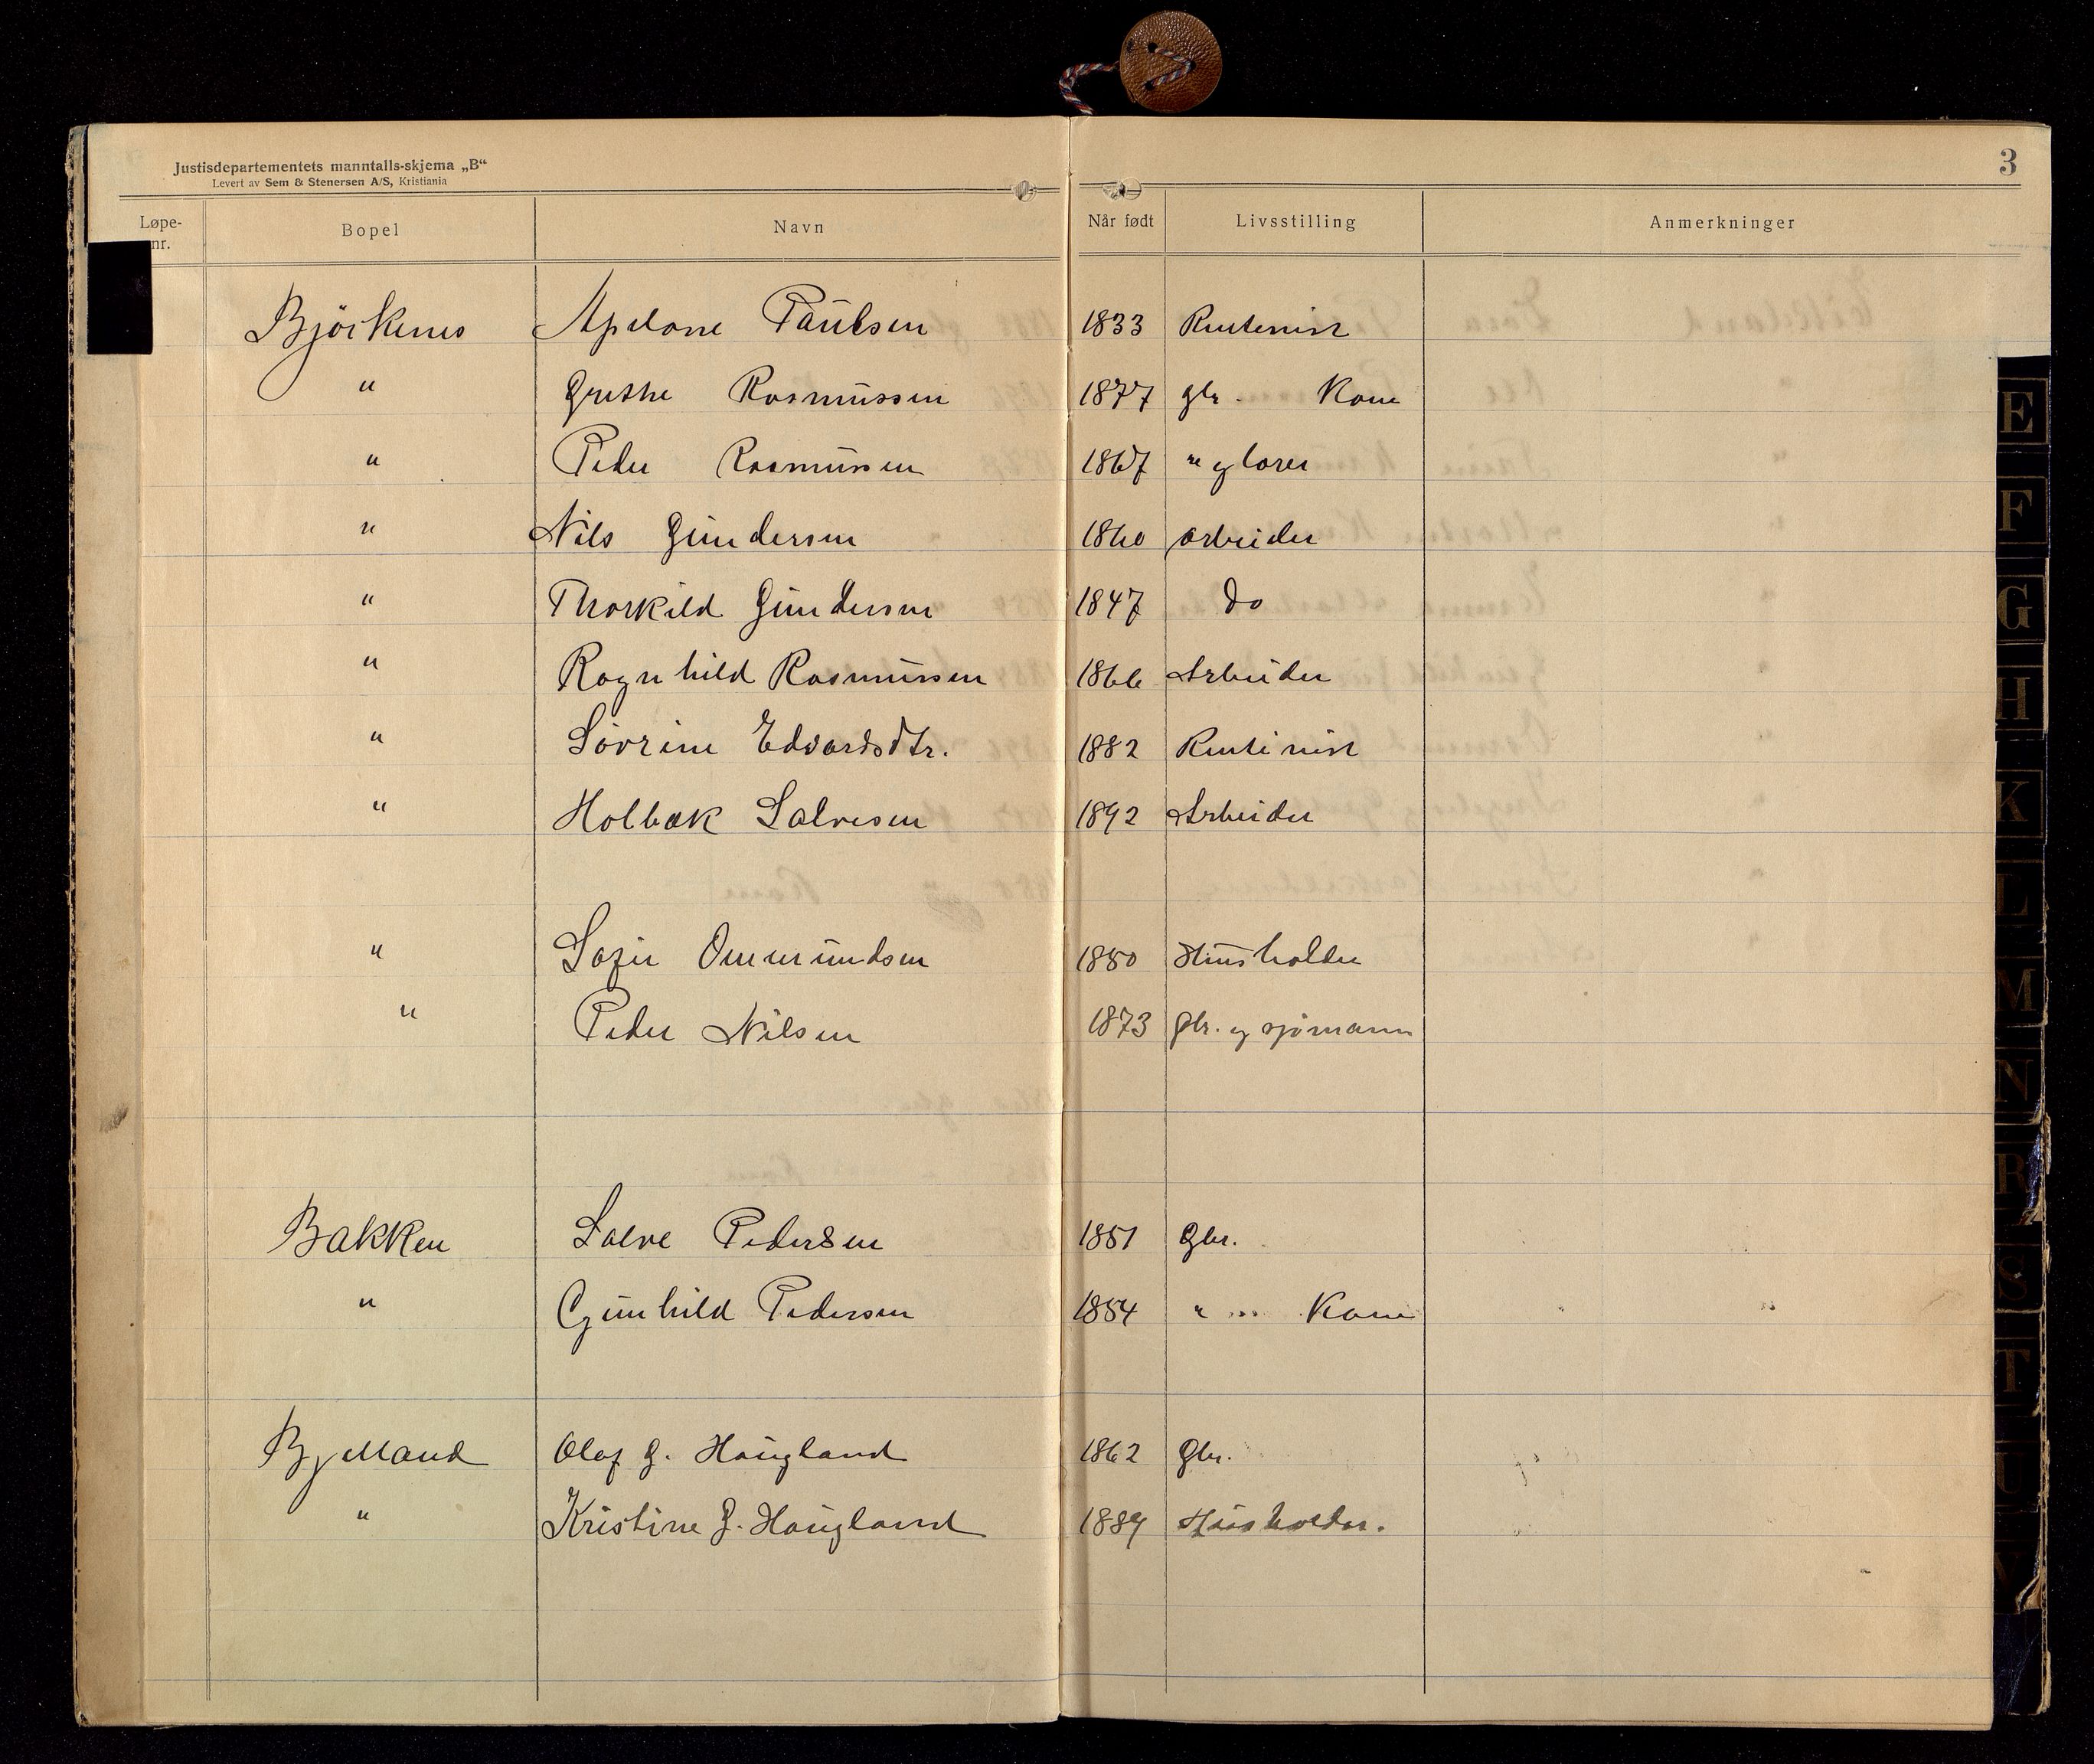 Justisdepartementets manntalls-skjema „B“
Levert av Sem & Stenersen A/S, Kristiania
3
Løpe-nr. Bopel Navn Når født Livsstilling Anmerkninger
Björkenes Apelone Paulsen 1833 Rentenist
" Grethe Rasmussen 1877 gbr. Kone
" Peder Rasmussen 1867 " og
" Nils Gundersen 1860 arbeider
" Thorkild Gundersen 1847 do
" Ragnhild Rasmussen 1866 Arbeider
" Sövrine Edvardsdtr. 1882 Rentinist
" Holbæk Salvesen 1892 Arbeider
" Sofie Ommundsen 1850 Husholder
" Peder Nilsen 1873 gbr. og sjömann
Bakken Salve Pedersen 1851 Gbr.
" Gunhild Pedersen 1854 " Kone
Bjelland Olaf G. Haugland 1862 Gbr.
" Kristine G. Haugland 1889 Husholder.
E
F
G
H
K
L
M
N
R
S
T
U
V